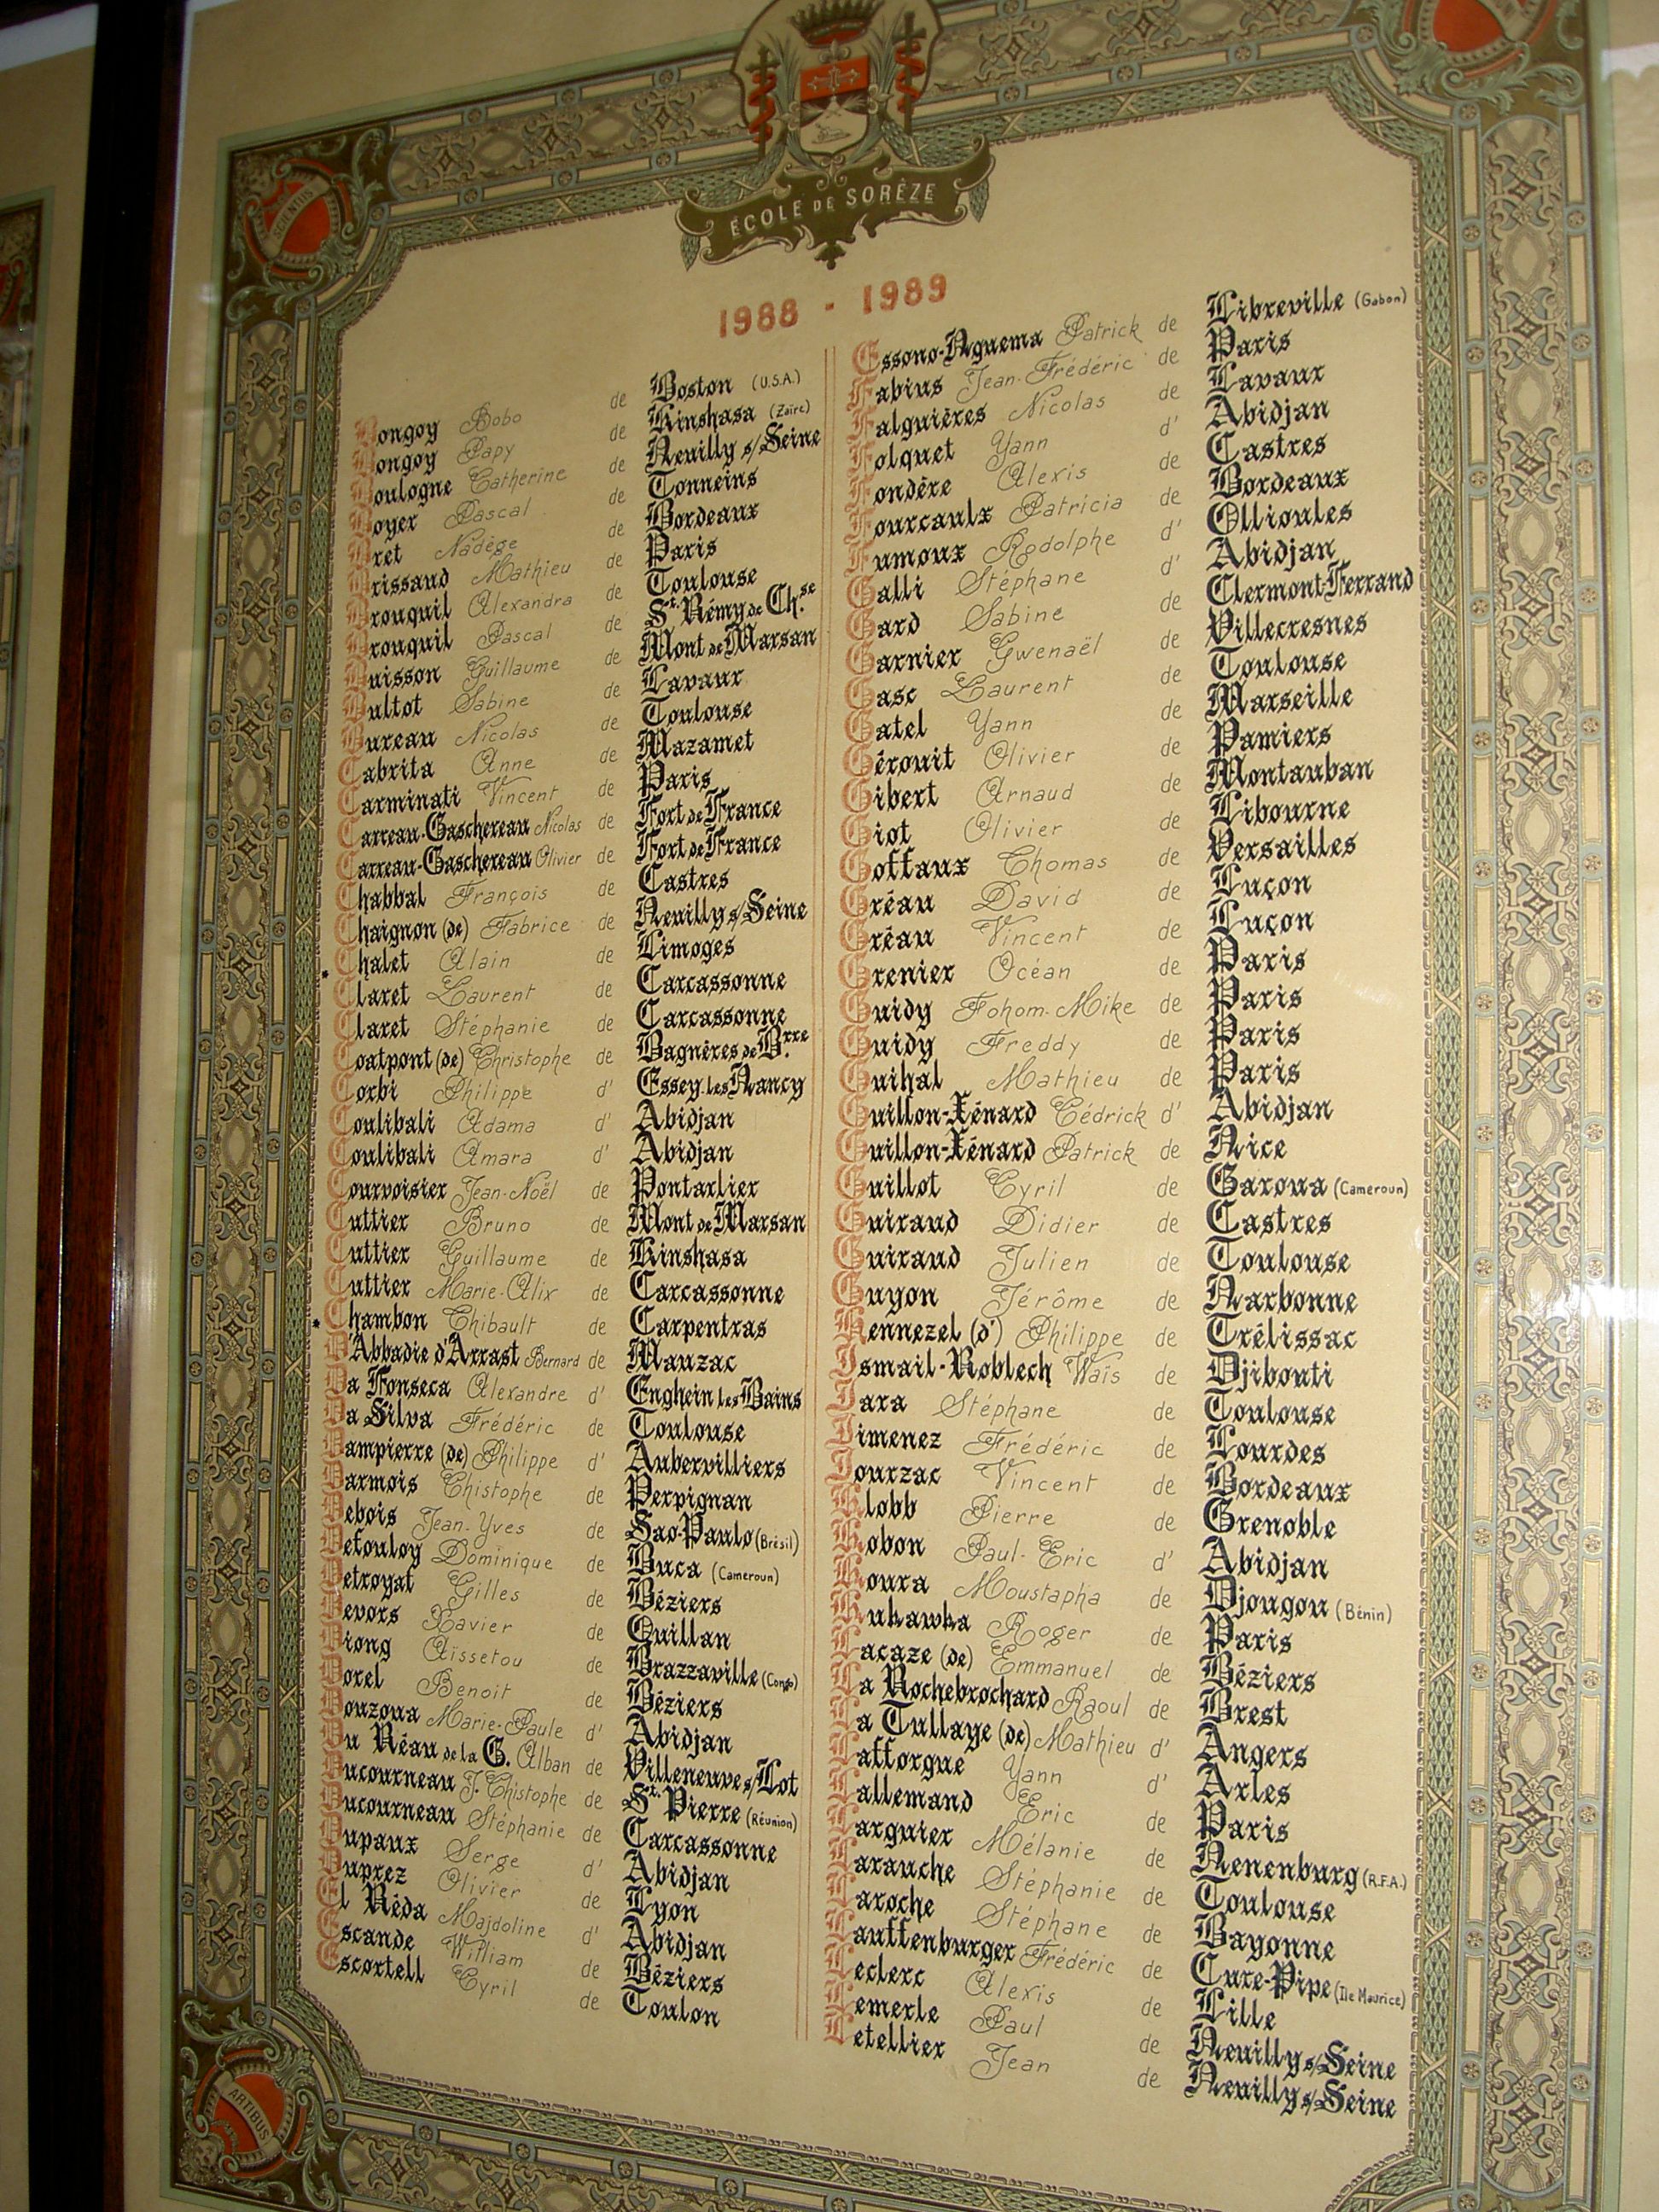 SCIENTIIS
ÉCOLE DE SORÈZE
1988 - 1989
Bongoy Bobo de Boston (U.S.A.)
Bongoy Papy de Kinshasa (Zaïre)
Boulogne Catherine de Neuilly s/Seine
Boyer Pascal de Tonneins
Bret Nadège de Bordeaux
Brissaud Mathieu de Paris
Brouquil Alexandra de Toulouse
Brouquil Pascal de St. Rémy de Ch.se
Buisson Guillaume de Mont de Marsan
Bultot Sabine de Lavaur
Bureau Nicolas de Toulouse
Cabrita Anne de Mazamet
Carminati Vincent de Paris
Carreau-Gaschereau Nicolas de Fort de France
Carreau-Gaschereau Olivier de Fort de France
Chabbal François de Castres
Chaignon (de) Fabrice de Neuilly s/Seine
Chalet Alain de Limoges
Claret Laurent de Carcassonne
Claret Stéphanie de Carcassonne
Coatpont (de) Christophe de Bagnères de B.rre
Corbi Philippe d' Essey-les-Nancy
Coulibali Adama d' Abidjan
Coulibali Amara d' Abidjan
Courvoisier Jean-Noël de Pontarlier
Cuttier Bruno de Mont de Marsan
Cuttier Guillaume de Kinshasa
Cuttier Marie-Alix de Carcassonne
* Chambon Thibault de Carpentras
D'Abbadie d'Arrast Bernard de Mauzac
Da Fonseca Alexandre d' Enghein les Bains
Da Silva Frédéric de Toulouse
Dampierre (de) Philippe d' Aubervilliers
Darmois Christophe de Perpignan
Debois Jean-Yves de Sao-Paulo (Brésil)
Defouloy Dominique de Buca (Cameroun)
Detroyat Gilles de Béziers
Devors Xavier de Quillan
Diong Aïssetou de Brazzaville (Congo)
Dorel Benoit de Béziers
Douzoua Marie-Paule d' Abidjan
Du Réau de la G. Alban de Villeneuve s/Lot
Ducourneau J. Chistophe de St. Pierre (Réunion)
Ducourneau Stéphanie de Carcassonne
Dupaux Serge d' Abidjan
Duprez Olivier de Lyon
El Réda Majdoline d' Abidjan
Escande William de Béziers
Escortell Cyril de Toulon
Essono-Nguema Patrick de Libreville (Gabon)
Fabius Jean-Frédéric de Paris
Falguières Nicolas de Lavaur
Folquet Yann d' Abidjan
Fondère Alexis de Castres
Fourcaulx Patricia de Bordeaux
Fumoux Rodolphe d' Ollioules
Galli Stéphane d' Abidjan
Gard Sabine de Clermont-Ferrand
Garnier Gwenaël de Villecresnes
Gasc Laurent de Toulouse
Gatel Yann de Marseille
Gérouit Olivier de Pamiers
Gibert Arnaud de Montauban
Giot Olivier de Libourne
Goffaux Thomas de Versailles
Gréau David de Luçon
Gréau Vincent de Luçon
Grenier Océan de Paris
Guidy Fohom-Mike de Paris
Guidy Freddy de Paris
Guihal Mathieu de Paris
Guillon-Xénard Cédrick d' Abidjan
Guillon-Xénard Patrick de Nice
Guillot Cyril de Garoua (Cameroun)
Guiraud Didier de Castres
Guiraud Julien de Toulouse
Guyon Jérôme de Narbonne
Hennezel (d') Philippe de Trélissac
Ismail-Roblech Waïs de Djibouti
Jara Stéphane de Toulouse
Jimenez Frédéric de Lourdes
Jourzac Vincent de Bordeaux
Klobb Pierre de Grenoble
Kobon Paul-Eric d' Abidjan
Koura Moustapha de Djougou (Bénin)
Kuhawha Roger de Paris
Lacaze (de) Emmanuel de Béziers
La Rochebrochard Raoul de Brest
La Tullaye (de) Mathieu d' Angers
Lafforgue Yann d' Arles
Lallemand Eric de Paris
Larguier Mélanie de Nenenburg (R.F.A.)
Larauche Stéphanie de Toulouse
Laroche Stéphane de Bayonne
Lauffenburger Frédéric de Cure-Pipe (Ile Maurice)
Leclerc Alexis de Lille
Lemerle Paul de Neuilly s/Seine
Letellier Jean de Neuilly s/Seine
ARTIBUS